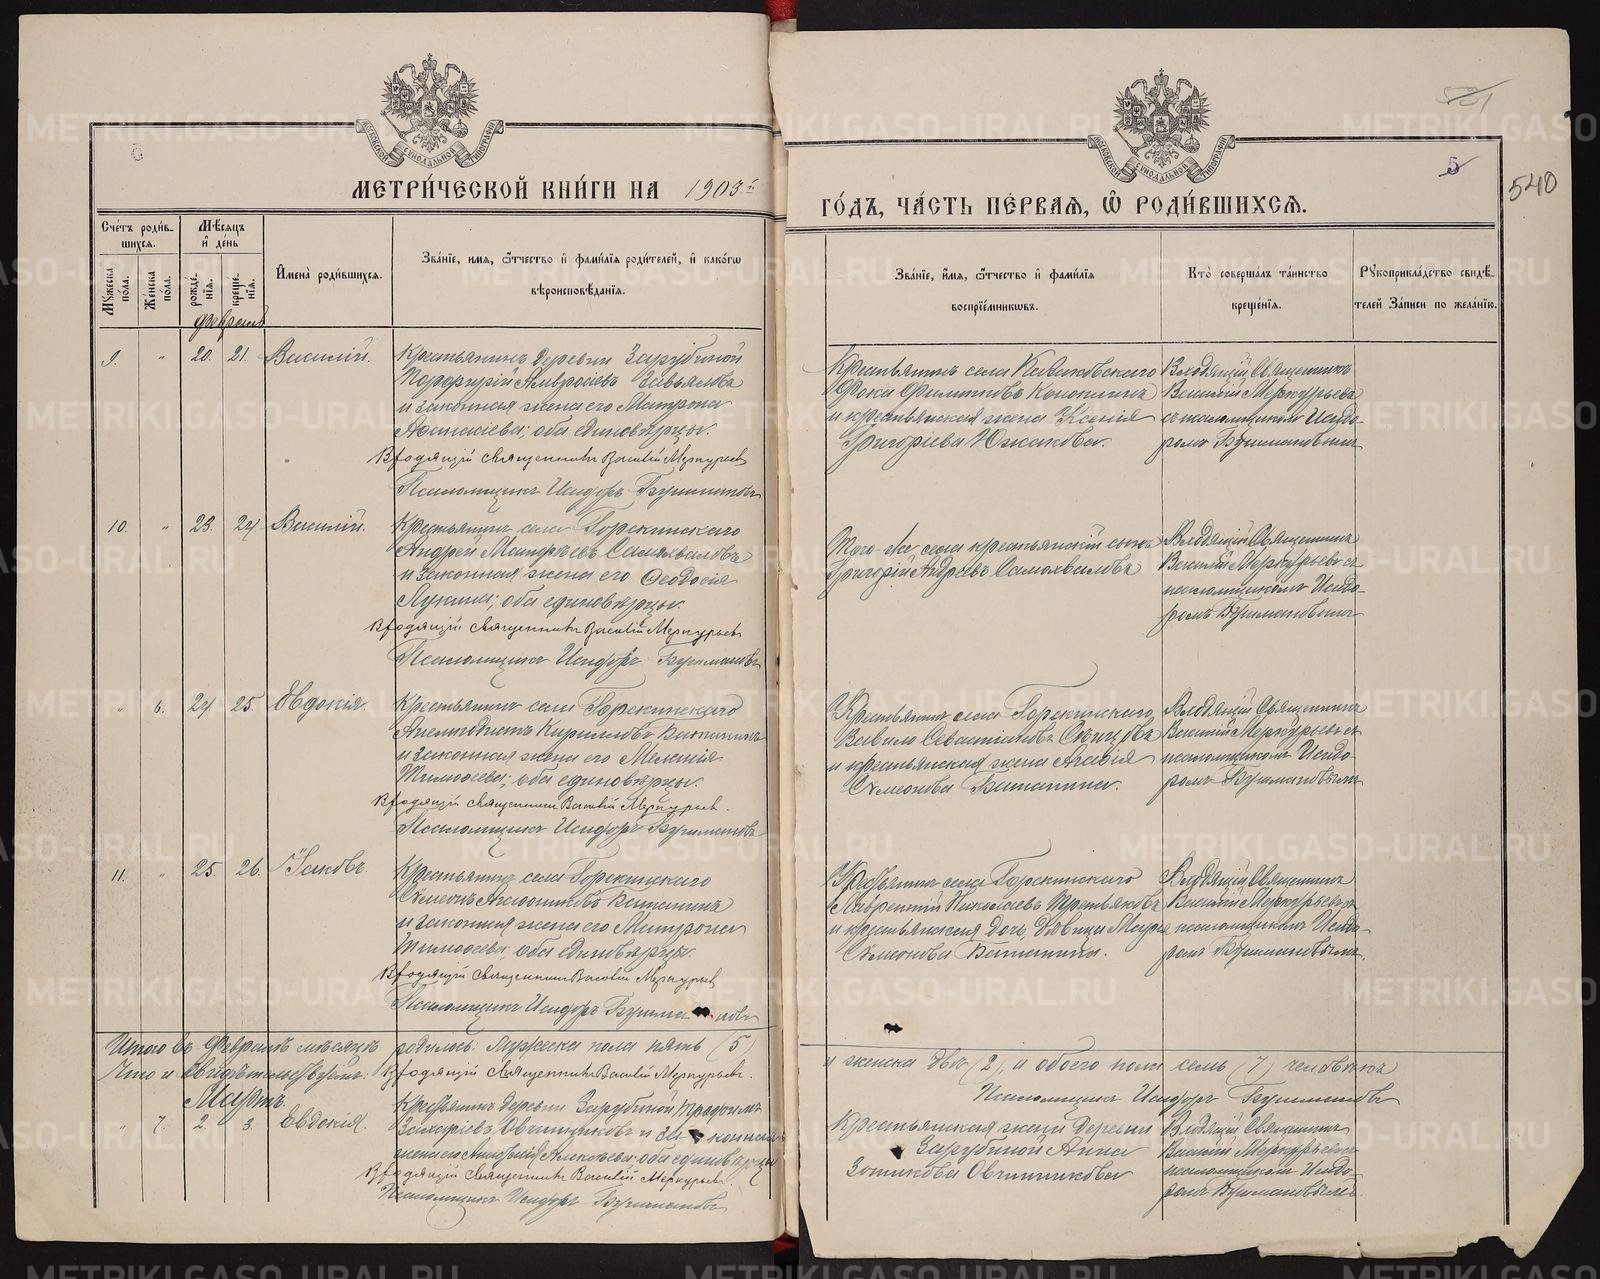 МЕТРИЧЕСКОЙ КНИГИ НА 1903й
Счетъ родив-
шихся.
Мѣсяцъ
и день
Мужеска пола.
Женска пола.
рожде-
нія.
креще-
нія.
Имена родившихся.
Званіе, имя, отчество и фамилія родителей, и какого
вѣроисповѣданія.
Февраль
9. " 20. 21. Василій.
Крестьянинъ деревни Зарубиной
Порфирій Амвросіевъ Завьяловъ
и законная жена его Матрона
Аѳанасіева; оба единовѣрцы.
Входящій Священникъ Василій Меркурьевъ
Псаломщикъ Исидоръ Бушмановъ
10. " 23. 24. Василій.
Крестьянинъ села Горскинскаго
Андрей Самохваловъ
и законная жена его Ѳеодосія
Лукина; оба единовѣрцы.
Входящій Священникъ Василій Меркурьевъ
Псаломщикъ Исидоръ Бушмановъ
" 6. 24 25. Евдокія.
Крестьянинъ села Горскинскаго
Кириловъ
и законная жена его Меланія
Тимоѳеева; оба единовѣрцы.
Входящій Священникъ Василій Меркурьев.
Псаломщикъ Исидоръ Бушмановъ
11. " 25 26. Іаковъ.
Крестьянинъ села Горскинскаго
Сѵмеонъ
и законная жена его Матрона
Тимоѳеева; оба единовѣрцы.
Входящій Священникъ Василій Меркурьев
Псаломщикъ Исидоръ Бушмановъ
Итого въ Февралѣ мѣсяцѣ родилось: Мужеска пола пять (5)
Что и свидѣтельствуемъ: Входящій Священникъ Василій Меркурьевъ.
Мартъ.
" 7. 2. 3. Евдокія.
Крестьянинъ деревни Зарубиной Трофимъ
Захаріевъ Овчинниковъ и законная
жена его Алексѣева; оба единовѣрцы
Входящій Священникъ Василій Меркурьев.
Псаломщикъ Исидоръ Бушмановъ
5
540
ГОДЪ, ЧАСТЬ ПЕРВАЯ, Ѡ РОДИВШИХСЯ.
Званіе, имя, отчество и фамилія
воспріемниковъ.
Кто совершалъ таинство
крещенія.
Рукоприкладство свидѣ-
телей записи по желанію.
Крестьянинъ села
Фока Филипповъ Конюхинъ
и крестьянская жена Ксенія
Григоріева Южакова.
Входящій Священникъ
Василій Меркурьевъ
съ псаломщикомъ Исидо-
ромъ Бушмановымъ
Того-же села крестьянскій сынъ
Григорій Андреевъ Самохваловъ
Входящій Священникъ
Василій Меркурьевъ съ
псаломщикомъ Исидо-
ромъ Бушмановымъ
Крестьянинъ села Горскинскаго
Вавило Севастіановъ
и крестьянская жена Агафія
Сѵмеонова
Входящій Священникъ
Василій Меркурьевъ съ
псаломщикомъ Исидо-
ромъ Бушмановымъ
Крестьянинъ села Горскинскаго
Лаврентій Николаевъ Третьяковъ
и крестьянская дочь дѣвица
Сѵмеонова
Входящій Священникъ
Василій Меркурьевъ съ
псаломщикомъ Исидо-
ромъ Бушмановымъ.
и женска двѣ (2), а обоего пола семь (7) человѣкъ
Псаломщикъ Исидоръ Бушмановъ
Крестьянская жена деревни
Зарубиной Анна
Зотикова Овчинникова
Входящій Священникъ
Василій Меркурьевъ съ
псаломщикомъ Исидо-
ромъ Бушмановымъ.
METRIKI.GASO-URAL.RU